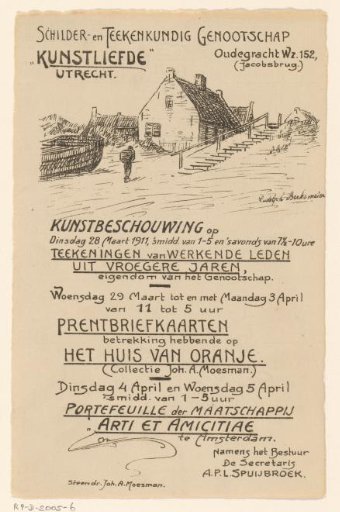 SCHILDER- en TEEKENKUNDIG GENOOTSCHAP
„KUNSTLIEFDE"
UTRECHT.
Oudegracht Wz. 152,
(Jacobsbrug.)
KUNSTBESCHOUWING op
Dinsdag 28 Maart 1911, 'smidd. van 1-5 en 'savonds van 7½-10 ure
TEEKENINGEN van WERKENDE LEDEN
UIT VROEGERE JAREN,
eigendom van het Genootschap.
Woensdag 29 Maart tot en met Maandag 3 April
van 11 tot 5 uur
PRENTBRIEFKAARTEN
betrekking hebbende op
HET HUIS VAN ORANJE.
(Collectie Joh. A. Moesman.)
Dinsdag 4 April en Woensdag 5 April
'smidd. van 1-5 uur
PORTEFEUILLE der MAATSCHAPPIJ
„ARTI ET AMICITIAE
te Amsterdam.
Namens het Bestuur
De Secretaris
A.P.L. SPUIJBROEK.
Steendr. Joh. A. Moesman.